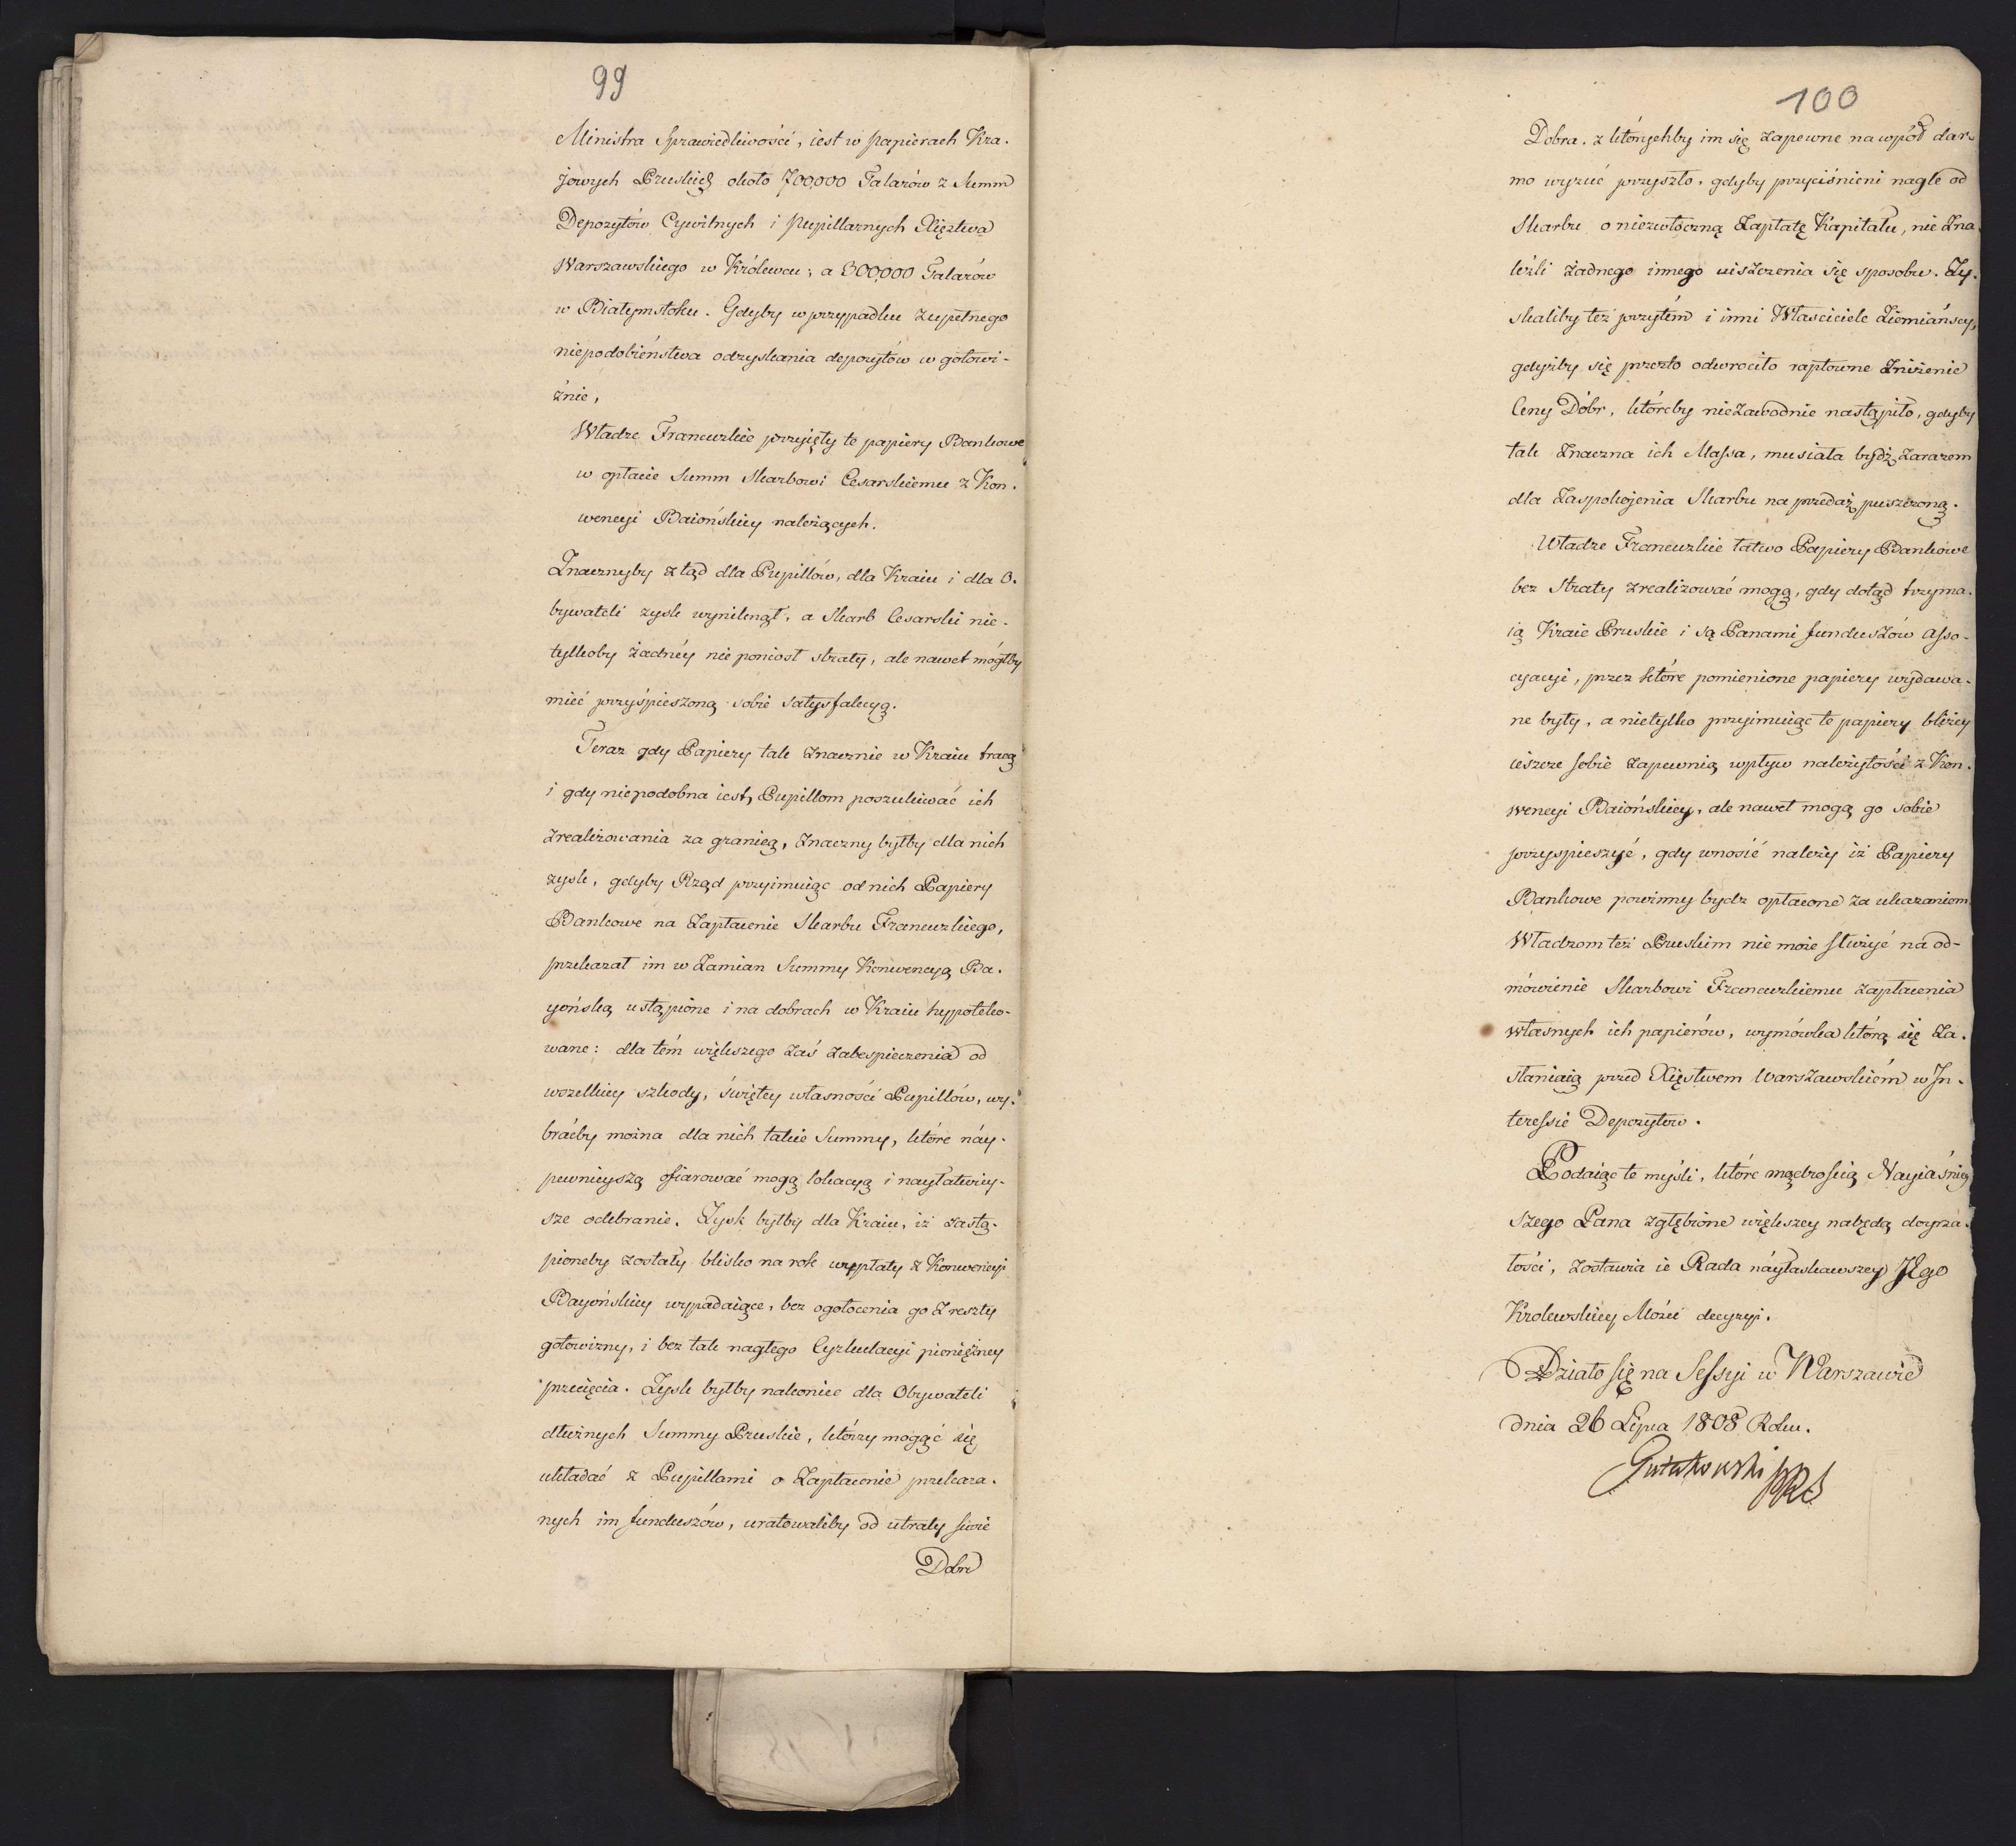 99
Ministra Sprawiedliwości, iest w papierach Kra.
jowych Pruskich około 700,000 Talarów z Summ
Depozytów Cywilnych i Pupillarnych Xięztwa
Warszawskiego w Królewcu; a 300,000 Talarów
w Białymstoku. Gdyby w przypadku zupełnego
niepodobieństwa odzyskania depozytów w gotowi-
źnie,
Władze Francuzkie przyięły te papiery Bankowe
w opłacie Summ Skarbowi Cesarskiemu z Kon.
wencyi Baiońskiey należących.
Znacznyby ztąd dla Pupillów, dla Kraiu i dla O.
bywateli zysk wyniknął, a Skarb Cesarski nie-
tylkoby żadnéy nie poniosł straty, ale nawet mógłby
mieć przyśpieszoną sobie satysfakcyą.
Teraz gdy Papiery tak znacznie w Kraiu tracą
i gdy niepodobna iest, Pupillom poszukiwać ich
zrealizowania za granicą, znaczny byłby dla nich
zysk, gdyby Rząd przyimuiąc od nich Papiery
Bankowe na Zapłacenie Skarbu Francuzkiego,
przekazał im w Zamian Summy Konwencyą Ba.
yońską ustąpione i na dobrach w Kraiu hyppoteko-
wane: dla tém większego zaś zabespieczenia od
wszelkiey szkody, świętey własności Pupillów, wy-
braćby można dla nich takie Summy, które náy-
pewnieyszą ofiarować mogą lokacyą i nayłatwiey-
sze odebranie. Zysk byłby dla Kraiu, iż zastą-
pioneby zostały blisko na rok wypłaty z Konwencyi
Bayońskiey wypadaiące, bez ogołocenia go z reszty
gotowizny, i bez tak nagłego Cyrkulacyi pieniężney
przecięcia. Zysk byłby nakoniec dla Obywateli
dłużnych Summy Pruskie, którzy mogąc się
układać z Pupillami o Zapłacenie przekaza.
nych im funduszów, uratowaliby od utraty swie
Dobra
100
Dobra. z którychby im się zapewne na wpół dar-
mo wyzuć przyszło, gdyby przyciśnieni nagle od
Skarbu o niezwłoczną Zapłatę Kapitału, nie Zna.
leźli żadnego innego uiszczenia się sposobu. Zy.
skaliby też przytém i inni Właściciele Ziemiańscy,
gdyżby się przezto odwrociło raptowne Zniżenie
Ceny Dóbr, któreby niezawodnie nastąpiło, gdyby
tak Znaczna ich Massa, musiała bydź zarazem
dla Zaspokojenia Skarbu na przedaż puszczoną.
Władze Francuzkie łatwo Papiery Bankowe
bez straty zrealizować mogą, gdy dotąd trzyma.
ią Kraie Pruskie i są Panami funduszów Asso-
cyacyi, przez które pomienione papiery wydawa-
ne były, a nietylko przyimuiąc te papiery bliżey
ieszcze sobie zapewnią wpływ należytości z Kon.
wencyi Baiońskiey, ale nawet mogą go sobie
przyspieszyć, gdy wnosić należy iż Papiery
Bankowe powinny bydz opłacone za ukazaniem.
Władzom też Pruskim nie może służyć na od-
mówienie Skarbowi Francuzkiemu zapłacenia
własnych ich papierów, wymówka którą się Za.
słaniaią przed Xięstwem Warszawskiém w In-
teressie Depozytow.
Podaiąc te myśli, które mądrością Nayiaśniey
szego Pana zgłębione większey nabędą doyrza-
łości, Zostawia ie Rada náyłaskawszey JEgo
Krolewskiey Mości decyzyi.
Działo się na Sessyi w Warszawie
dnia 26 Lipca 1808 Roku.
Gutakowski PRS